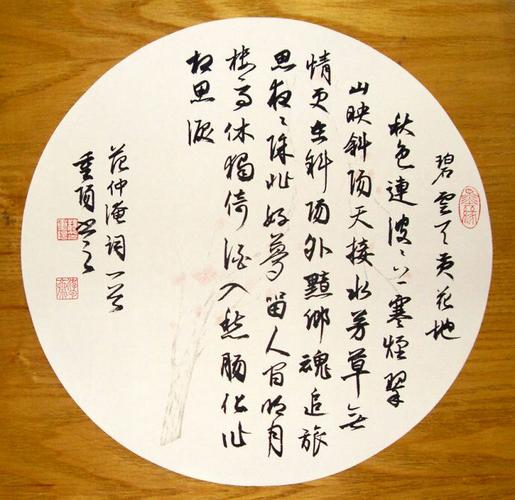 碧雲天黄花地
秋色連波〻上寒煙翠
山映斜陽天接水芳草無
情更在斜陽外黯鄉魂追旅
思夜〻除非好夢留人宿明月
樓高休獨倚酒入愁腸化作
相思淚
范仲淹詞一首
重陽書之